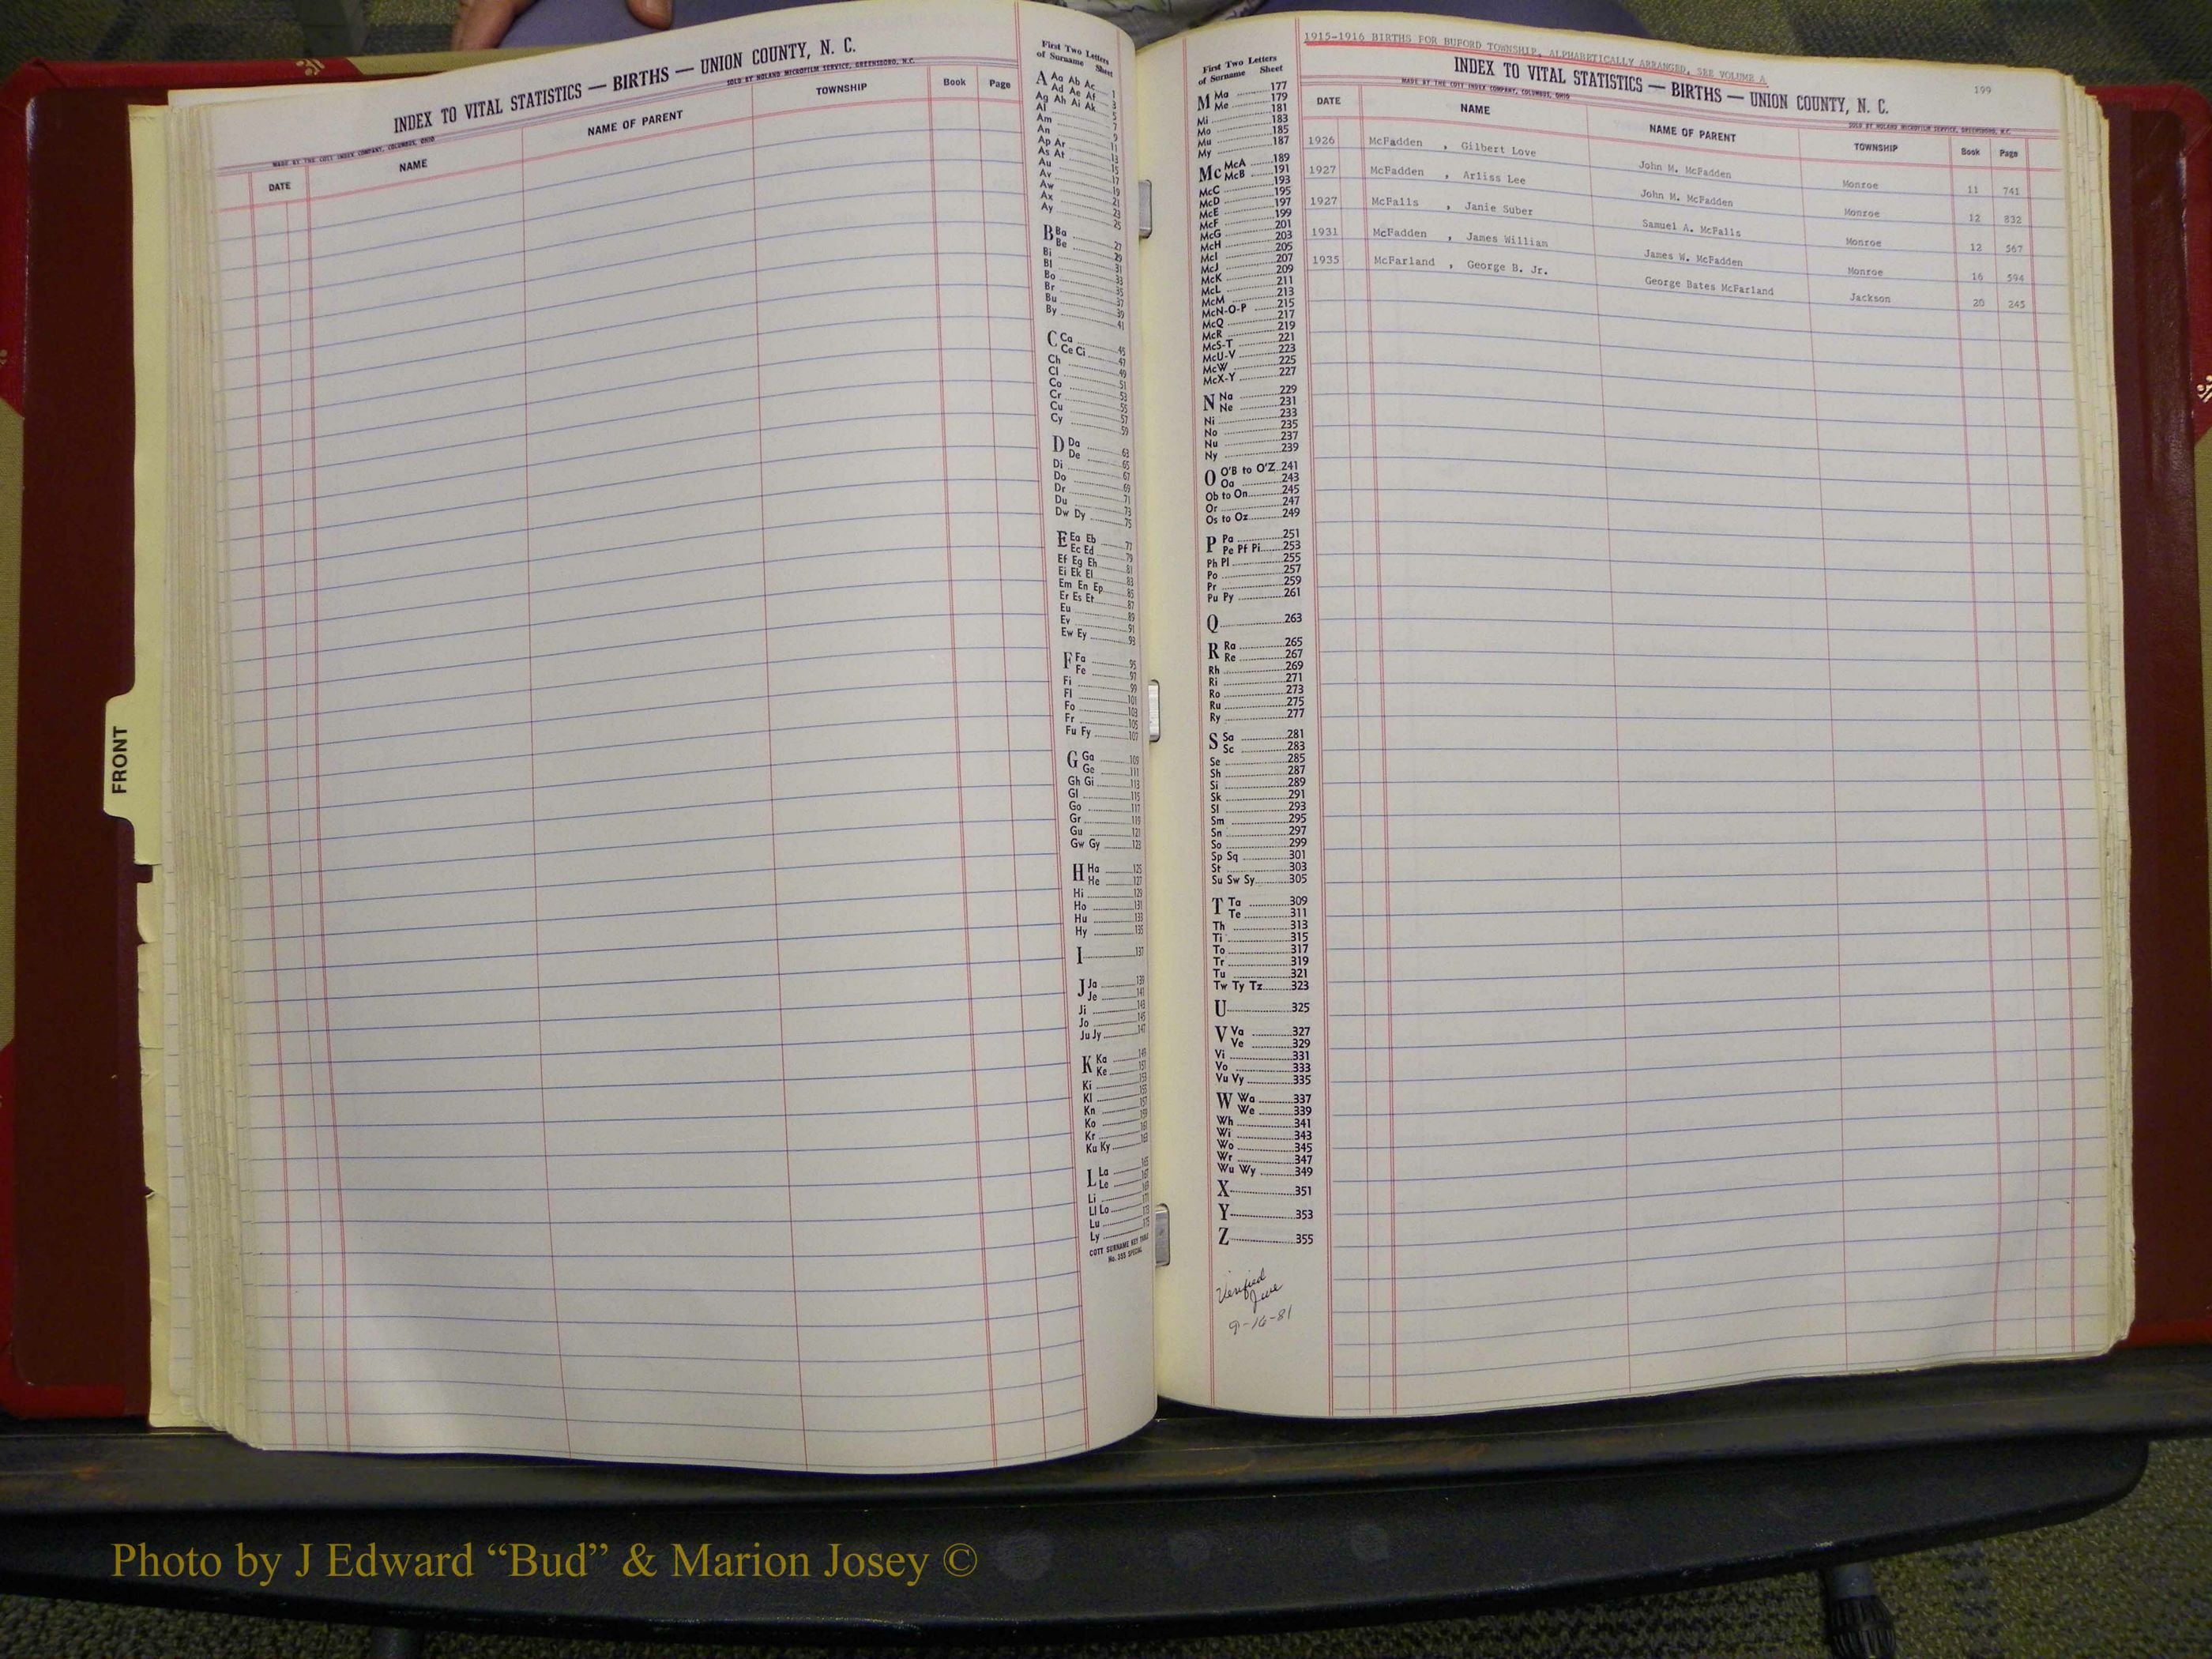 INDEX TO VITAL STATISTICS — BIRTHS — UNION COUNTY, N. C.
MADE BY THE COTT INDEX COMPANY, COLUMBUS, OHIO
SOLD BY NOLAND MICROFILM SERVICE, GREENSBORO, N.C.
DATE NAME NAME OF PARENT TOWNSHIP Book Page
First Two Letters
of Surname Sheet
A Aa Ab Ac 1
Ad Ae Af 3
Ag Ah Ai Ak 5
Al 7
Am 9
An 11
Ap Ar 13
As At 15
Au 17
Av 19
Aw 21
Ax 23
Ay 25
B Ba 27
Be 29
Bi 31
Bl 33
Bo 35
Br 37
Bu 39
By 41
C Ca 45
Ce Ci 47
Ch 49
Cl 51
Co 53
Cr 55
Cu 57
Cy 59
D Da 63
De 65
Di 67
Do 69
Dr 71
Du 73
Dw Dy 75
E Ea Eb 77
Ec Ed 79
Ef Eg Eh 81
Ei Ek El 83
Em En Ep 85
Er Es Et 87
Eu 89
Ev 91
Ew Ey 93
F Fa 95
Fe 97
Fi 99
Fl 101
Fo 103
Fr 105
Fu Fy 107
G Ga 109
Ge 111
Gh Gi 113
Gl 115
Go 117
Gr 119
Gu 121
Gw Gy 123
H Ha 125
He 127
Hi 129
Ho 131
Hu 133
Hy 135
I 137
J Ja 139
Je 141
Ji 143
Jo 145
Ju Jy 147
K Ka 149
Ke 151
Ki 153
Kl
Kn
Ko
Kr
Ku Ky
L La
Le
Li
Ll Lo
Lu
Ly
COTT SURNAME KEY TABLE
No. 355 SPECIAL
FRONT
1915-1916 BIRTHS FOR BUFORD TOWNSHIP, ALPHABETICALLY ARRANGED, SEE VOLUME A
199
INDEX TO VITAL STATISTICS — BIRTHS — UNION COUNTY, N. C.
MADE BY THE COTT INDEX COMPANY, COLUMBUS, OHIO
SOLD BY NOLAND MICROFILM SERVICE, GREENSBORO, N.C.
DATE NAME NAME OF PARENT TOWNSHIP Book Page
1926 McFadden , Gilbert Love John M. McFadden Monroe 11 741
1927 McFadden , Arliss Lee John M. McFadden Monroe 12 832
1927 McFalls , Janie Suber Samuel A. McFalls Monroe 12 567
1931 McFadden , James William James W. McFadden Monroe 16 594
1935 McFarland , George B. Jr. George Bates McFarland Jackson 20 245
First Two Letters
of Surname Sheet
M Ma 177
Me 179
Mi 181
Mo 183
Mu 185
My 187
Mc McA 189
McB 191
McC 193
McD 195
McE 197
McF 199
McG 201
McH 203
McI 205
McJ 207
McK 209
McL 211
McM 213
McN-O-P 215
McQ 217
McR 219
McS-T 221
McU-V 223
McW 225
McX-Y 227
N Na 229
Ne 231
Ni 233
No 235
Nu 237
Ny 239
O O'B to O'Z 241
Oa 243
Ob to On 245
Or 247
Os to Oz 249
P Pa 251
Pe Pf Pi 253
Ph Pl 255
Po 257
Pr 259
Pu Py 261
Q 263
R Ra 265
Re 267
Rh 269
Ri 271
Ro 273
Ru 275
Ry 277
S Sa 281
Sc 283
Se 285
Sh 287
Si 289
Sk 291
Sl 293
Sm 295
Sn 297
So 299
Sp Sq 301
St 303
Su Sw Sy 305
T Ta 309
Te 311
Th 313
Ti 315
To 317
Tr 319
Tu 321
Tw Ty Tz 323
U 325
V Va 327
Ve 329
Vi 331
Vo 333
Vu Vy 335
W Wa 337
We 339
Wh 341
Wi 343
Wo 345
Wr 347
Wu Wy 349
X 351
Y 353
Z 355
Verified
9-16-81
Photo by J Edward “Bud” & Marion Josey ©